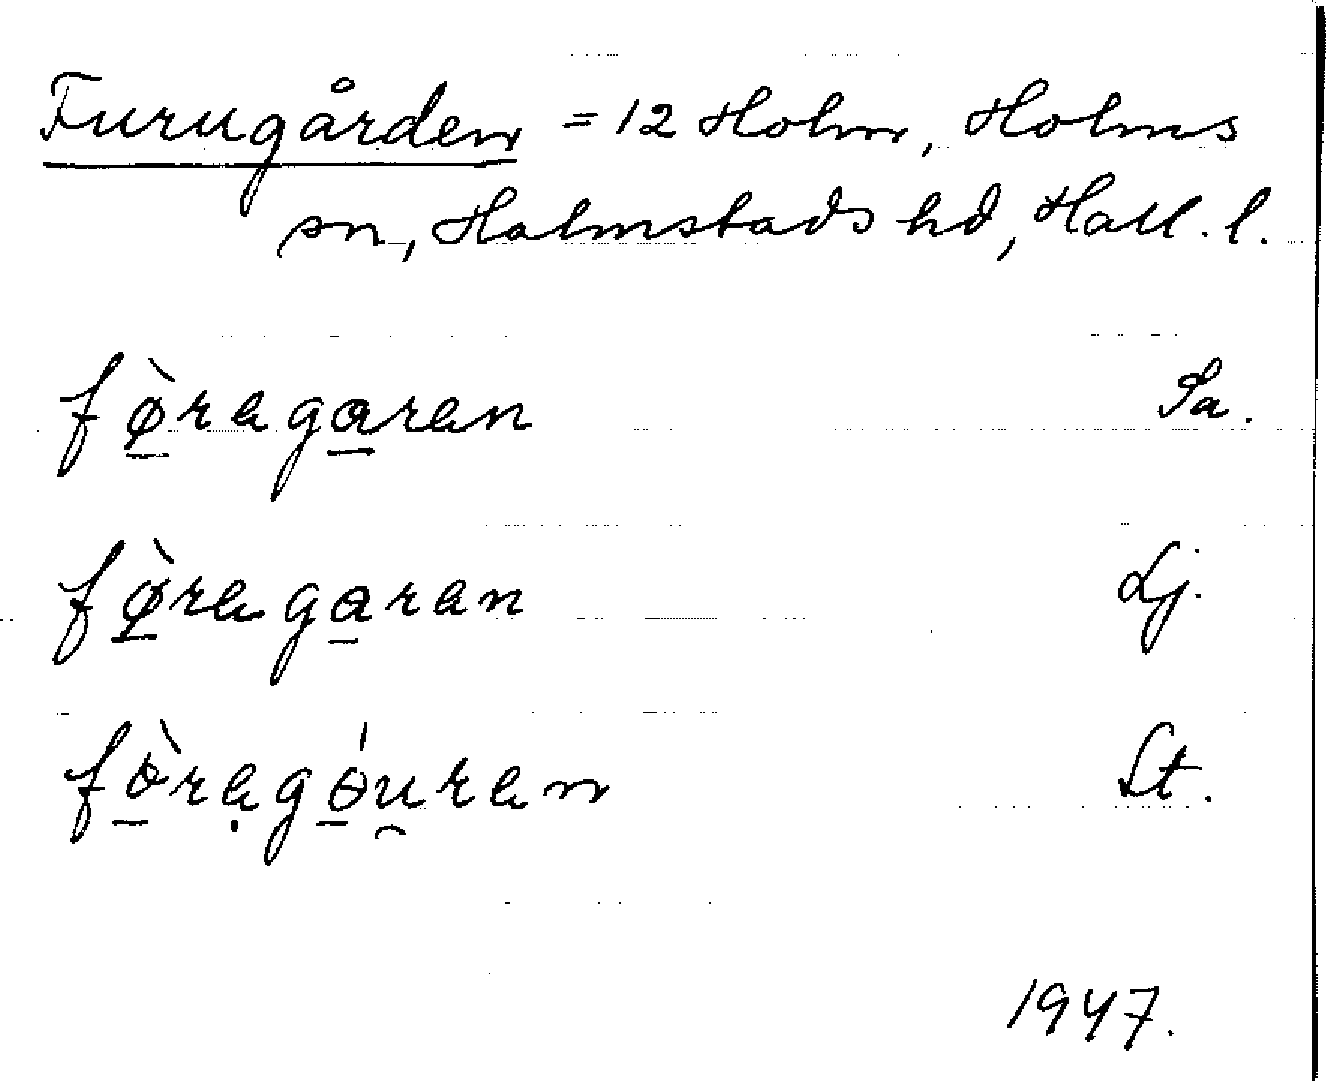 Furugården = 12 Holm, Holms
sn, Halmstads hd, Hall. l.
fø̲̀rega̲ren Sa.
fø̲̀rega̲ren Lj.
fò̲rẹgó̲u̯ren St.
1947.